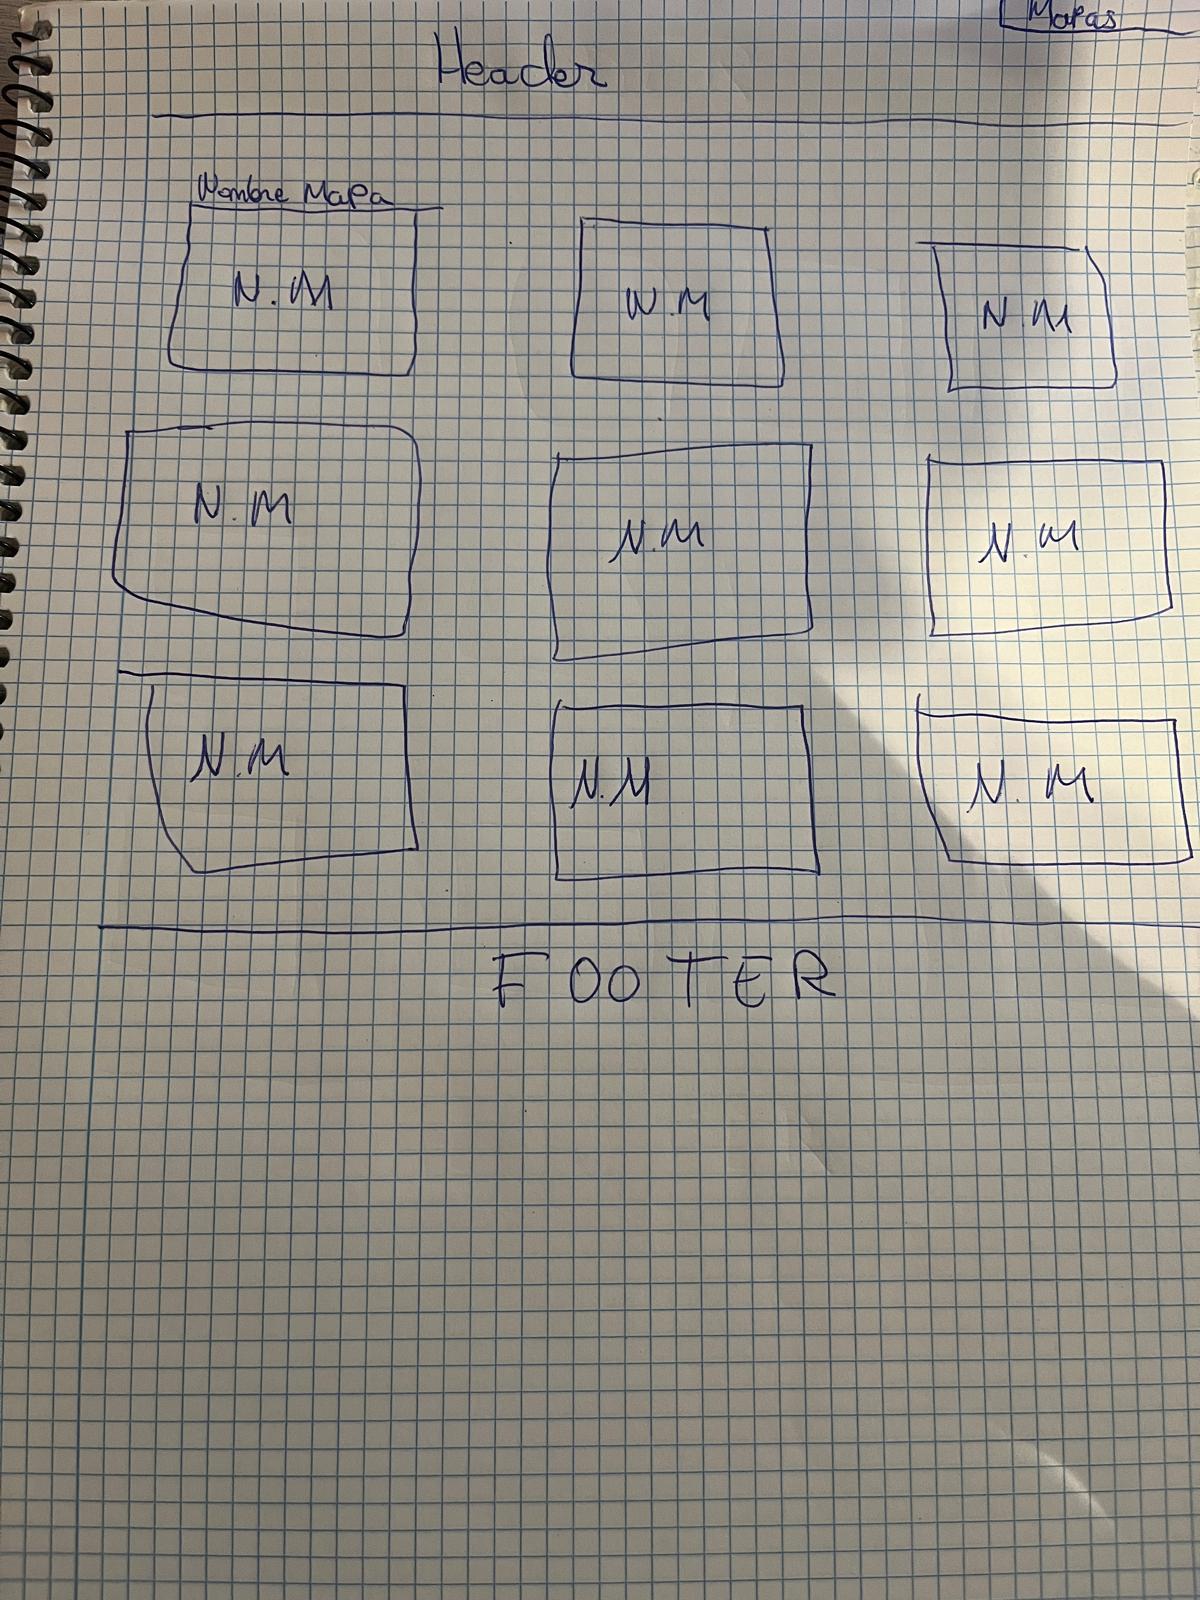 Mapas
Header
Nombre Mapa
N.M
N.M
N.M
N.M
N.M
N.M
N.M
N.M
N.M
FOOTER